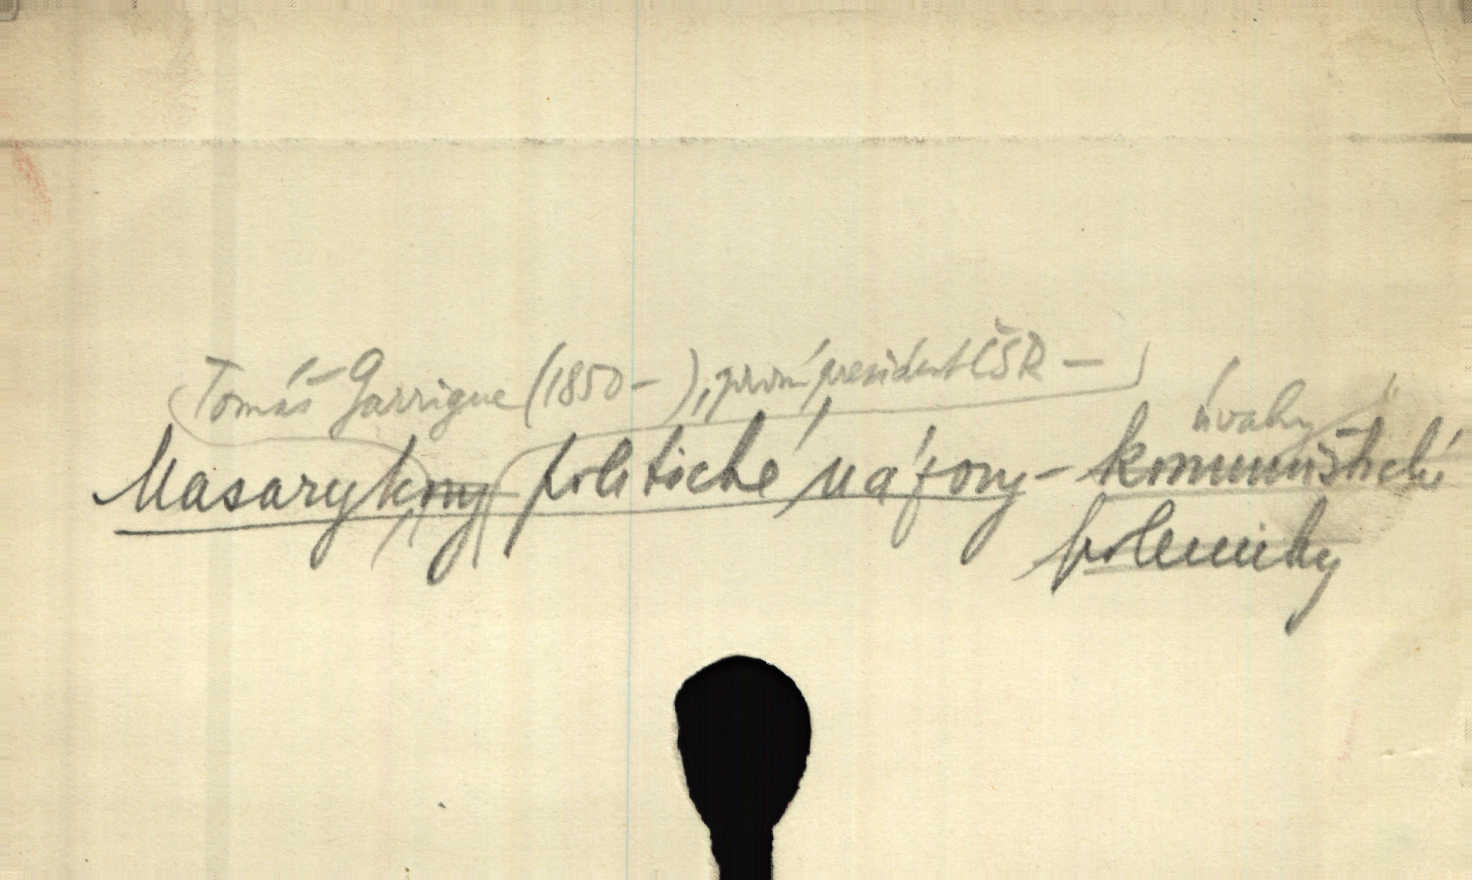 Tomáš Garrigue (1850- ), první president ČSR -
Masarykovy politické názory - komunistické
úvahy
polemiky